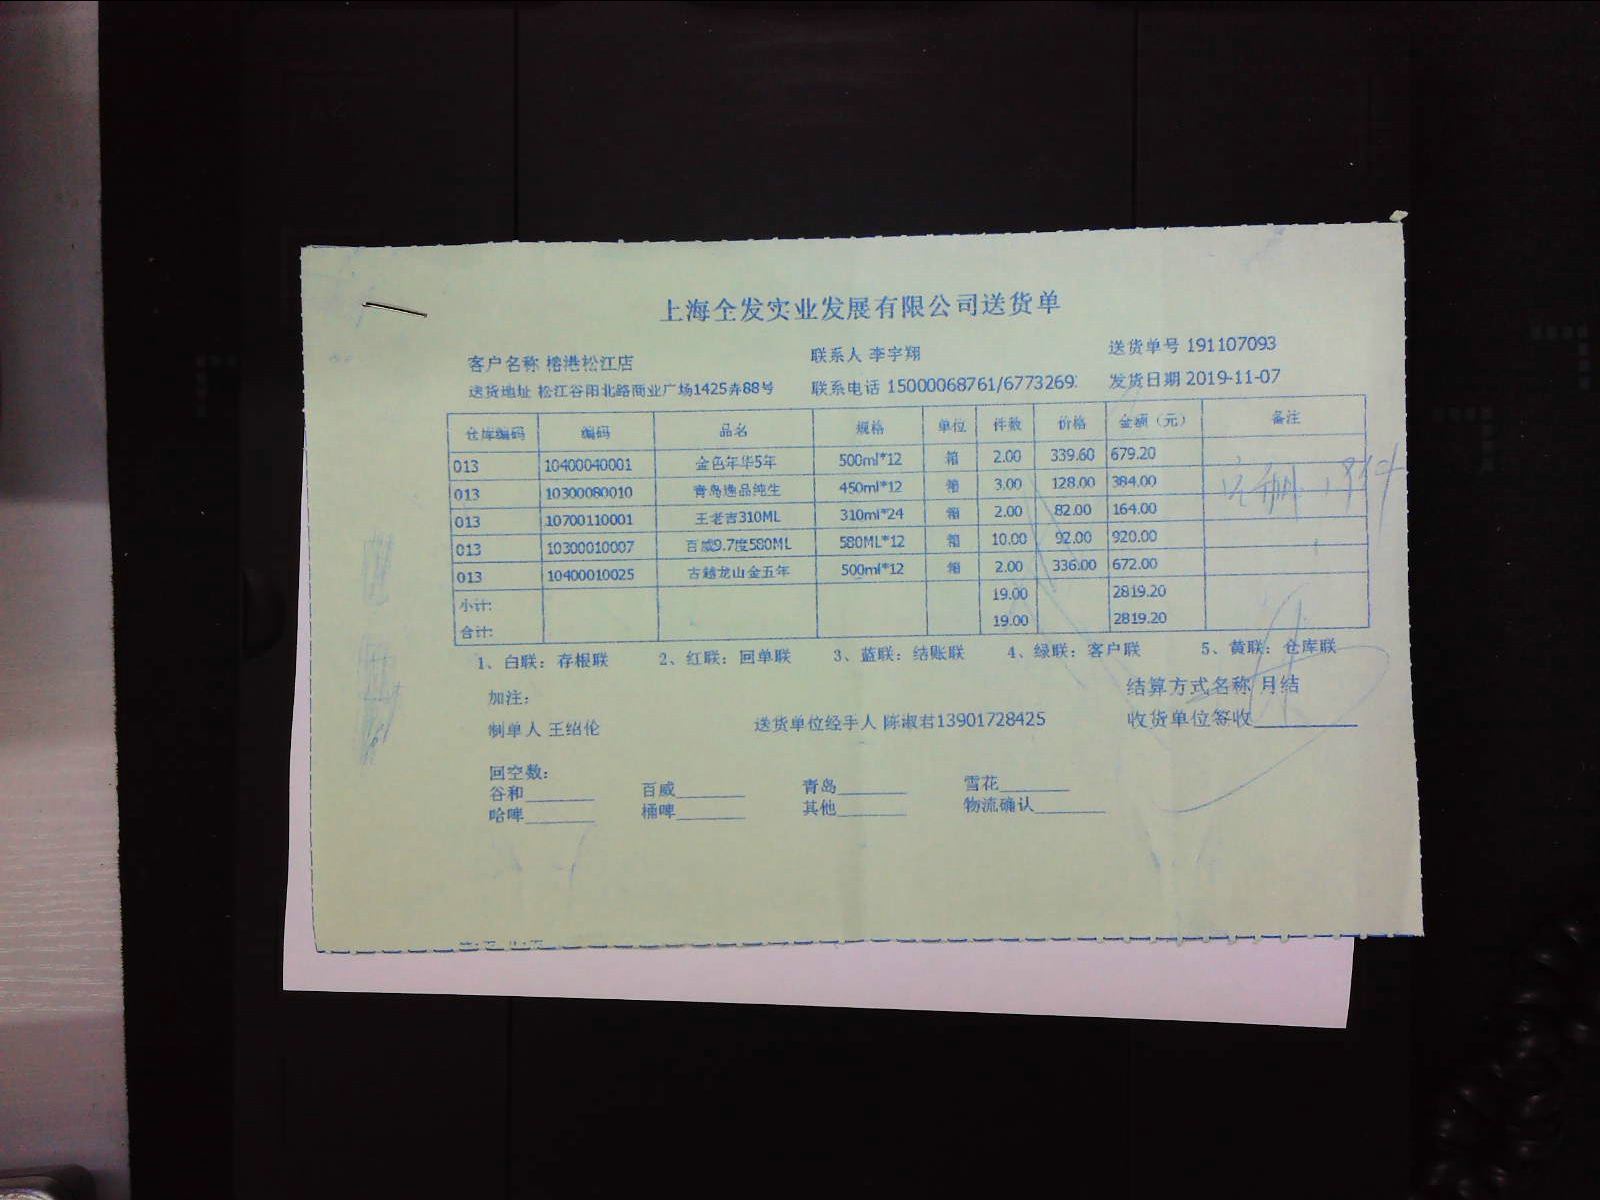 上海全发实业发展有限公司送货单
客户名称 榕港松江店 联系人 李宇翔 送货单号 191107093
送货地址 松江谷阳北路商业广场1425弄88号 联系电话 15000068761/6773269 发货日期 2019-11-07
仓库编码 编码 品名 规格 单位 件数 价格 金额（元） 备注
013 10400040001 金色年华5年 500ml*12 箱 2.00 339.60 679.20
013 10300080010 青岛逸品纯生 450ml*12 箱 3.00 128.00 384.00
013 10700110001 王老吉310ML 310ml*24 箱 2.00 82.00 164.00
013 10300010007 百威9.7度580ML 580ML*12 箱 10.00 92.00 920.00
013 10400010025 古越龙山金五年 500ml*12 箱 2.00 336.00 672.00
小计: 19.00 2819.20
合计: 19.00 2819.20
1、白联：存根联 2、红联：回单联 3、蓝联：结账联 4、绿联：客户联 5、黄联：仓库联
加注： 结算方式名称 月结
制单人 王绍伦 送货单位经手人 陈淑君13901728425 收货单位签收
回空数：
谷和 百威 青岛 雪花
哈啤 桶啤 其他 物流确认